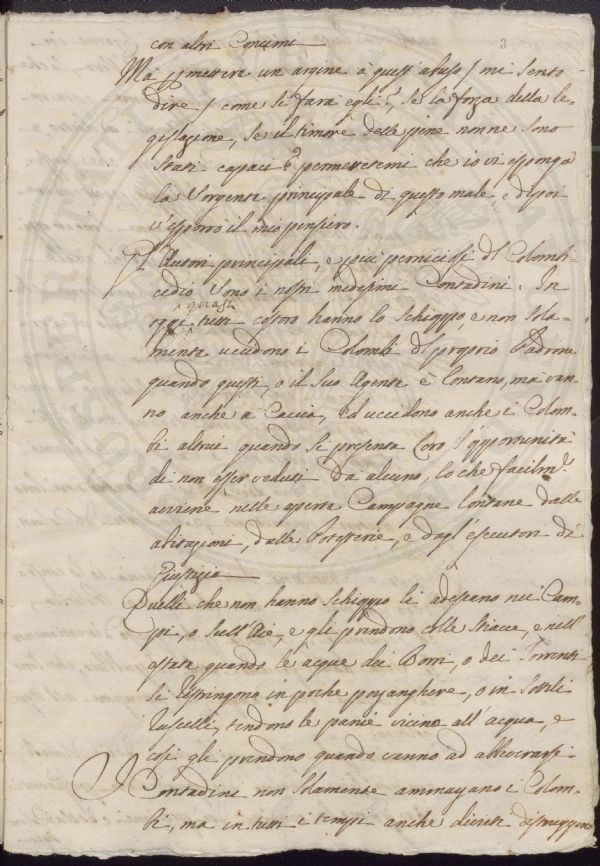 con altri Concimi
3
Ma p mettere un argine à quest'abuso / mi sento
dire / come si farà egli?, Se la forza della le-
gislazione, se il timore delle pene non ne sono
stati capaci? permettetemi che io vi esponga
la Sorgente principale di questo male, e dipoi
v'esporrò il mio pensiero.
Gl'Autori principali, e più perniciosi del Colombi-
cedio sono i nostri medesimi Contadini. In
oggi quasi tutti costoro hanno lo schioppo, e non sola-
mente uccidono i Colombi del proprio Padrone
quando questi, o il suo Agente è lontano, ma van-
no anche a Caccia, ed uccidono anche i Colom-
bi altrui quando si presenta loro l'opportunità
di non esser veduti da alcuno, lo che facilm.e
avviene nelle aperte Campagne lontane dalle
abitazioni, dalle Potesterie, e dagl'esecutori di
Giustizia
Quelli che non hanno schioppo li adescano nei Cam-
pi, o sull'Aie, e gli prendono colle stiacce, e nell'
estate quando le acque dei Borri, o dei Torrenti
si ristringono in poche pozanghere, o in sottili
ruscelli, tendono le panie vicino all'acqua, e
così gli prendono quando vanno ad abbeverarsi
I Contadini non solamente ammazzano i Colom-
bi, ma in tutti i tempi anche divieti distruggono